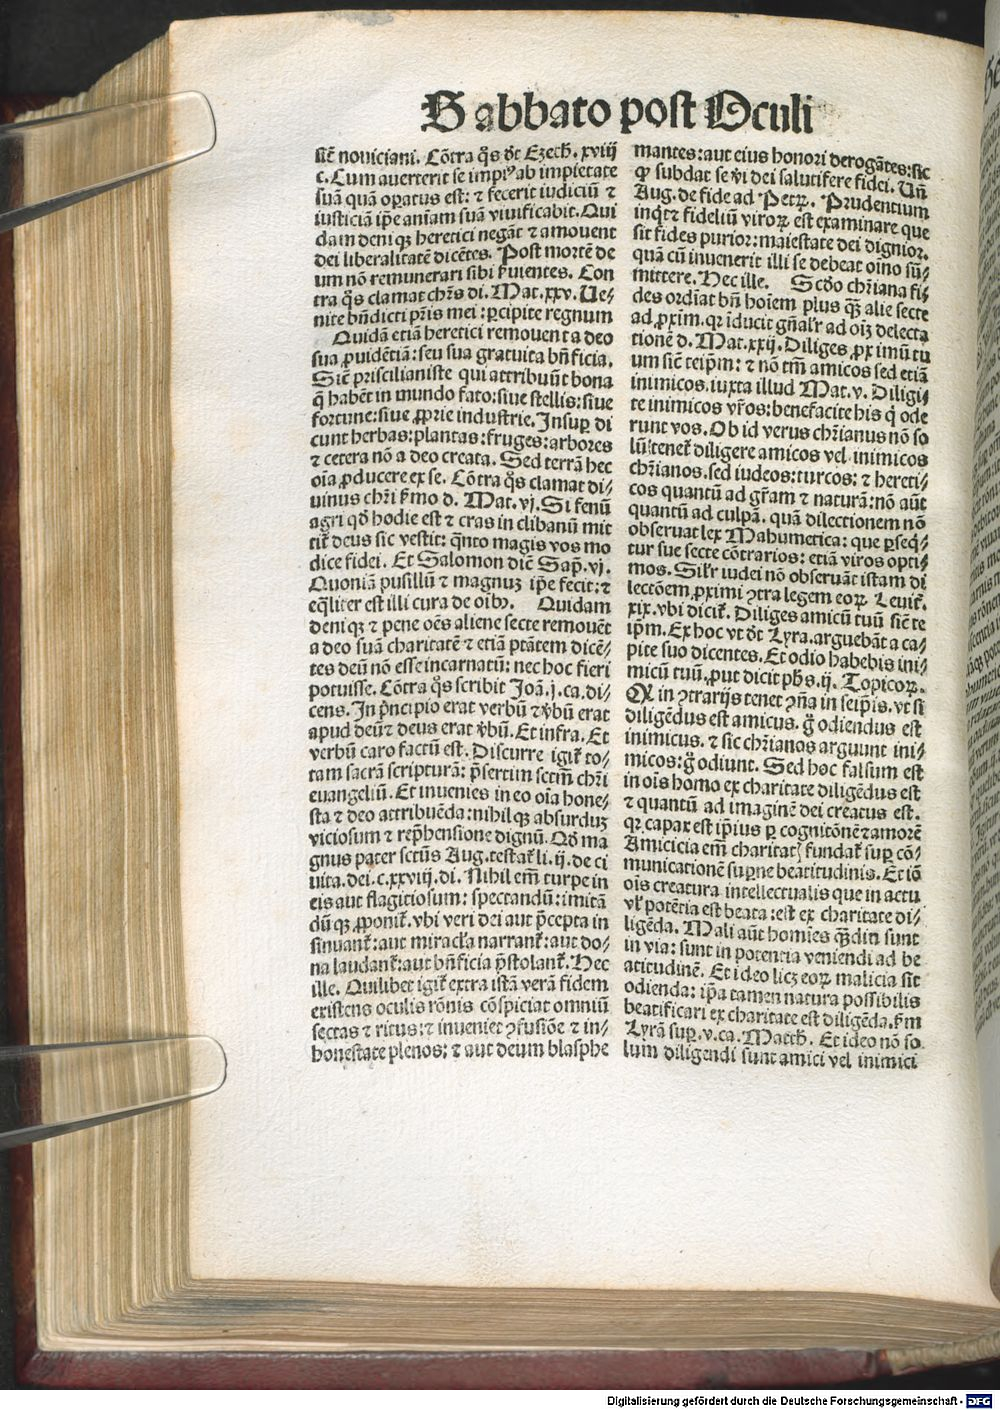 Sabbato post Oculi
sicẽ nouiciani. Cõtra q̃s dr̃ Ezech. xviij
c. Cum auerterit se impiꝰ ab impietate
suã quã oꝑatus est: ⁊ fecerit iudiciũ ⁊
iusticiã ip̃e aniam suã viuificabit. Qui
dam deniqꝫ heretici negãt ⁊ amouent
dei liberalitatẽ dicẽtes. Post mortẽ de
um nõ remunerari sibi ẜuientes. Con
tra q̃s clamat chr̃s di. Mat. xxv. Ue⸗
nite bñdicti pr̃is mei: ꝑcipite regnum
Quidã etiã heretici remouent a deo
sua ꝓuidẽtiã: seu sua gratuita bñficia.
Sicẽ priscilianiste qui attribuũt bona
q̃ habẽt in mundo fato: siue stellis: siue
fortune: siue ꝓprie industrie. Insuꝑ di
cunt herbas: plantas: fruges: arbores
⁊ cetera nõ a deo creata. Sed terrã hec
oĩa ꝓducere ex se. Cõtra q̃s clamat di⸗
uinus chr̃i ẜmo d. Mat. vj. Si fenũ
agri qđ hodie est ⁊ cras in clibanũ mit
tit̃ deus sic vestit: q̃nto magis vos mo
dice fidei. Et Salomon dic̃ Sap̃. vj.
Quoniã pusillũ ⁊ magnuꝫ ip̃e fecit: ⁊
eq̃liter est illi cura de oibꝰ. Quidam
deniqꝫ ⁊ pene oẽs aliene secte remouẽt
a deo suã charitatẽ ⁊ etiã ptãtem dicẽ⸗
tes deũ nõ esse incarnatũ: nec hoc fieri
potuisse. Cõtra q̃s scribit Joã. j. ca. di⸗
cens. In p̃ncipio erat verbũ ⁊ v̾bũ erat
apud deũ ⁊ deus erat v̾bũ. Et infra. Et
verbũ caro factũ est. Discurre igit̃ to⸗
tam sacrã scripturã: p̃sertim sctm̃ chr̃i
euangeliũ. Et inuenies in eo oĩa hone⸗
sta ⁊ deo attribuẽda: nihil qꝫ absurduꝫ
viciosum ⁊ rep̃hensione dignũ. Qđ ma
gnus pater sctũs Aug. testat̃ li. ij. de ci
uita. dei. c. xxviij. di. Nihil em̃ turpe in
eis aut flagitiosum: spectandũ: imitã
dũ qꝫ ꝓponit̃. vbi veri dei aut p̃cepta in
sinuant̃: aut miracl̃a narrant̃: aut do⸗
na laudant̃: aut bñficia p̃stolant̃. Hec
ille. Quilibet igit̃ extra istã verã fidem
existens oculis rõnis cõspiciat omniũ
sectas ⁊ ritus: ⁊ inueniet ꝯfusiõe ⁊ in⸗
honestate plenos: ⁊ aut deum blasphe
mantes: aut eius honori derogãtes: sic
ꝙ subdat se v̾i dei salutifere fidei. Uñ
Aug. de fide ad Petꝝ. Prudentium
inq̃t ⁊ fideliũ viroꝝ est examinare que
sit fides purior: maiestate dei dignior.
quã cũ inuenerit illi se debeat oĩno sũ⸗
mittere. Hec ille. Scđo chr̃iana fi⸗
des ordĩat bñ hoĩem plus q̃ꝫ alie secte
ad ꝓxim. qꝛ ĩducit gñal̃r ad oiꝫ delecta
tionẽ d. Mat. xxij. Diliges ꝓximũ tu
um sicẽ teip̃m: ⁊ nõ tm̃ amicos sed etiã
inimicos. iuxta illud Mat. v. Diligi⸗
te inimicos vr̃os: benefacite his q̃ ode
runt vos. Ob id verus chr̃ianus nõ so
lũ tenet̃ diligere amicos vel inimicos
chr̃ianos. sed iudeos: turcos: ⁊ hereti⸗
cos quantũ ad gr̃am ⁊ naturã: nõ aũt
quantũ ad culpã. quã dilectionem nõ
obseruat lex Mahumetica: que ꝑseq̃⸗
tur sue secte cõtrarios: etiã viros opti⸗
mos. Sil̃r iudei nõ obseruãt istam di
lectõem ꝓximi ꝯtra legem eoꝝ Leuit̃.
xix. vbi dicit̃. Diliges amicũ tuũ sicẽ te
ip̃m. Ex hoc vt dr̃ Lyra. arguebãt a ca⸗
pite suo dicentes. Et odio habebis ini⸗
micũ tuũ. ꝓut dicit ph̃s. ij. Topicoꝝ.
Qꝛ in ꝯtrarijs tenet ꝯña in seip̃is. vt si
diligẽdus est amicus. g̃ odiendus est
inimicus. ⁊ sic chr̃ianos arguunt ini⸗
micos: g̃ odiunt. Sed hoc falsum est
in oĩs homo ex charitate diligẽdus est
⁊ quantũ ad imaginẽ dei creatus est.
qꝛ capax est ip̃ius ꝑ cognitõnẽ ⁊ amorẽ
Amicicia em̃ charitatꝭ fundat̃ suꝑ cõ⸗
municationẽ suꝑne beatitudinis. Et iõ
oĩs creatura intellectualis que in actu
vl̃ potẽtia est beata: est ex charitate di⸗
ligẽda. Mali aũt homĩes q̃ꝫdiu sunt
in via: sunt in potentia veniendi ad be
atitudinẽ. Et ideo licꝫ eoꝝ malicia sit
odienda: ip̃a tamen natura possibilis
beatificari ex charitate est diligẽda. ẜm
Lyrã suꝑ. v. ca. Matth̃. Et ideo nõ so⸗
lum diligendi sunt amici vel inimici
Digitalisierung gefördert durch die Deutsche Forschungsgemeinschaft - DFG